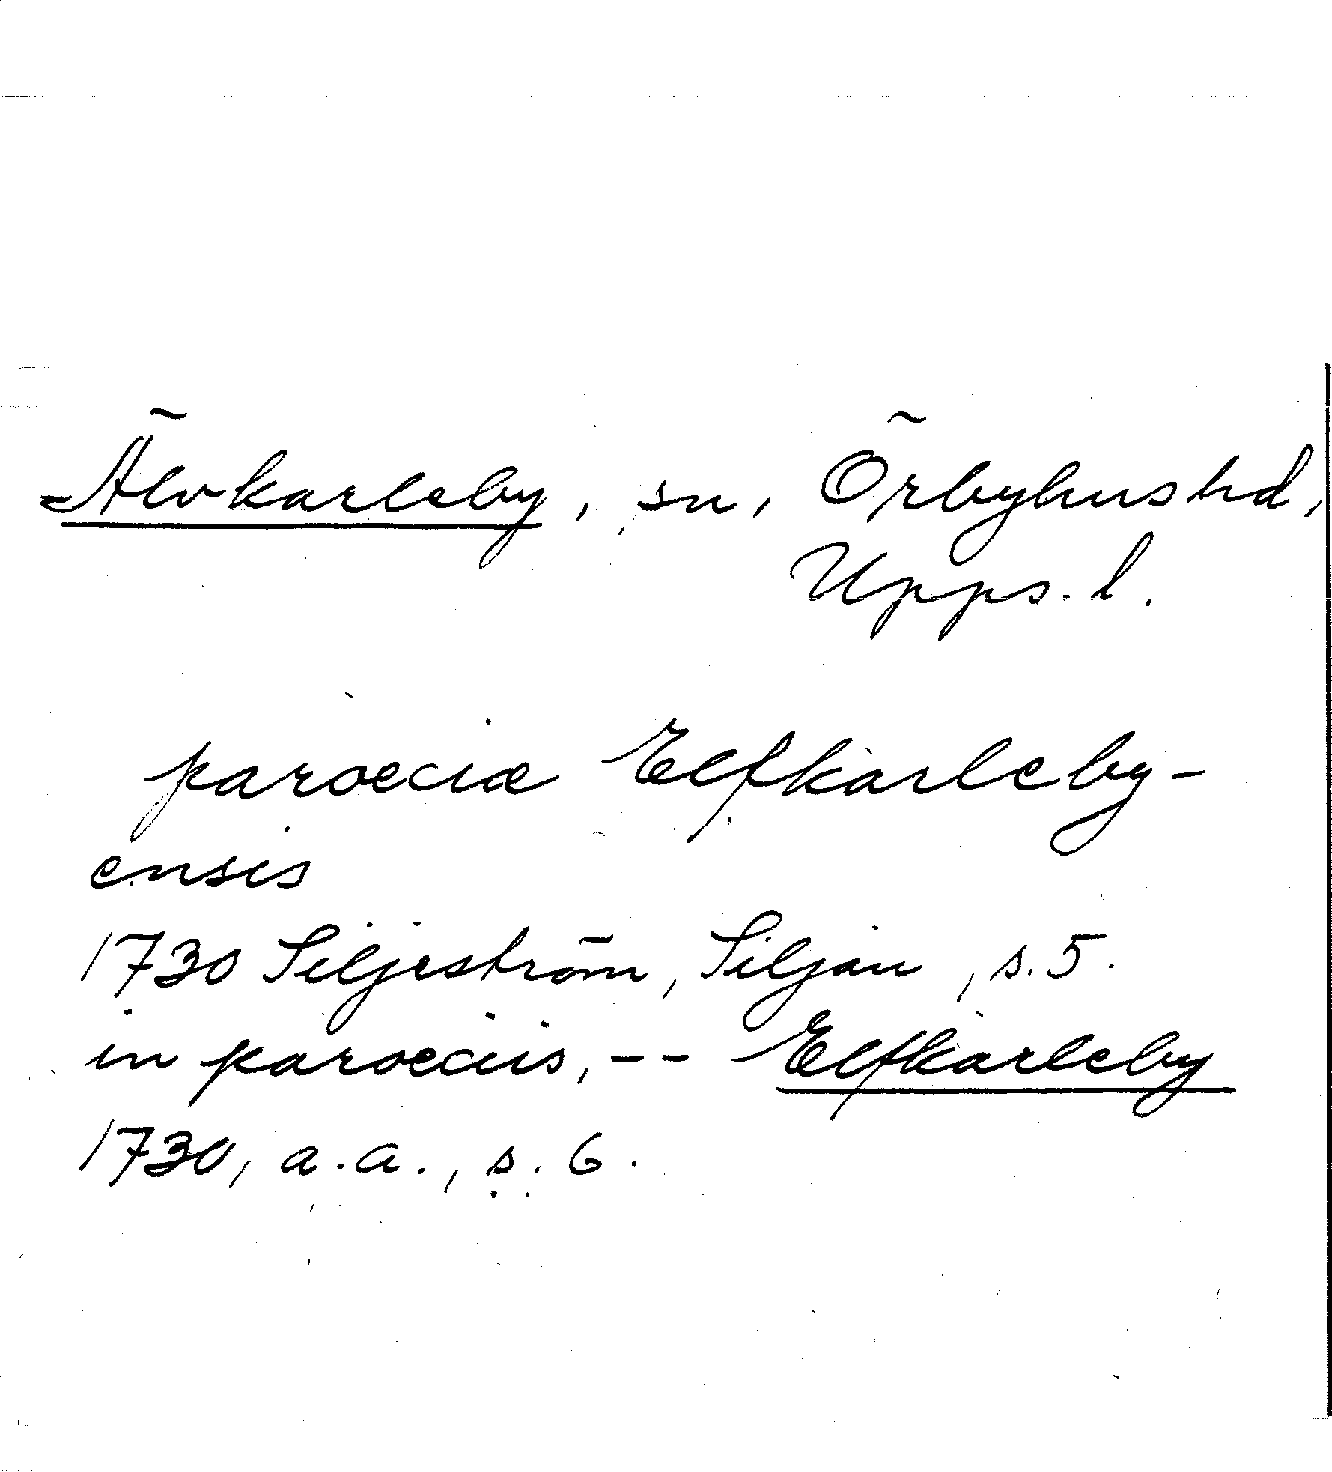 Älvkarleby, sn, Örbyhus hd,
Upps. l.
paroeciæ Elfkarleby-
ensis
1730 Siljeström, Siljan, s. 5.
in paroeciis, -- Elfkarleby
1730, a.a., s. 6.